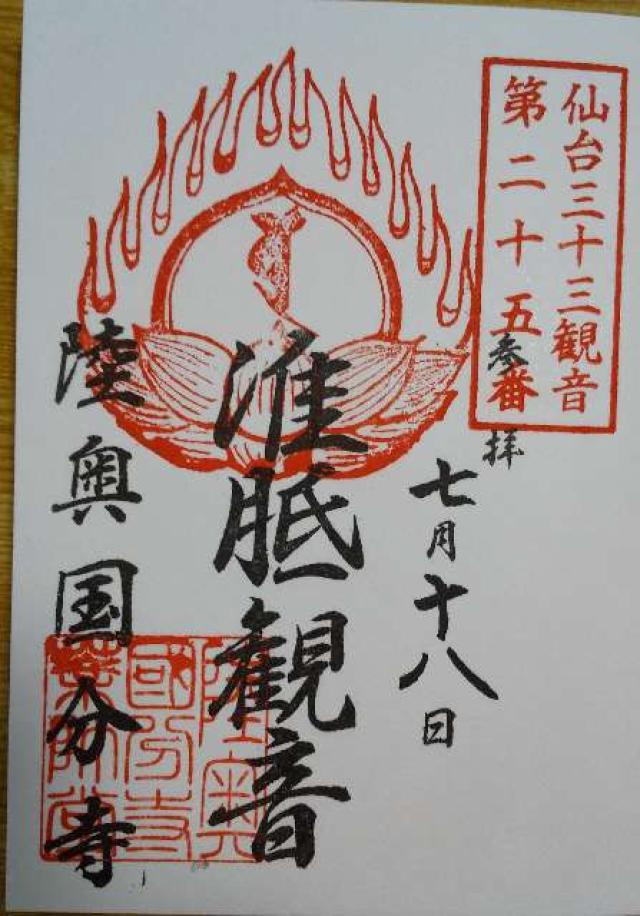 仙台三十三観音
第二十五番
参拝
七月十八日
准胝観音
陸奥国分寺
陸奥
國分寺
薬師堂